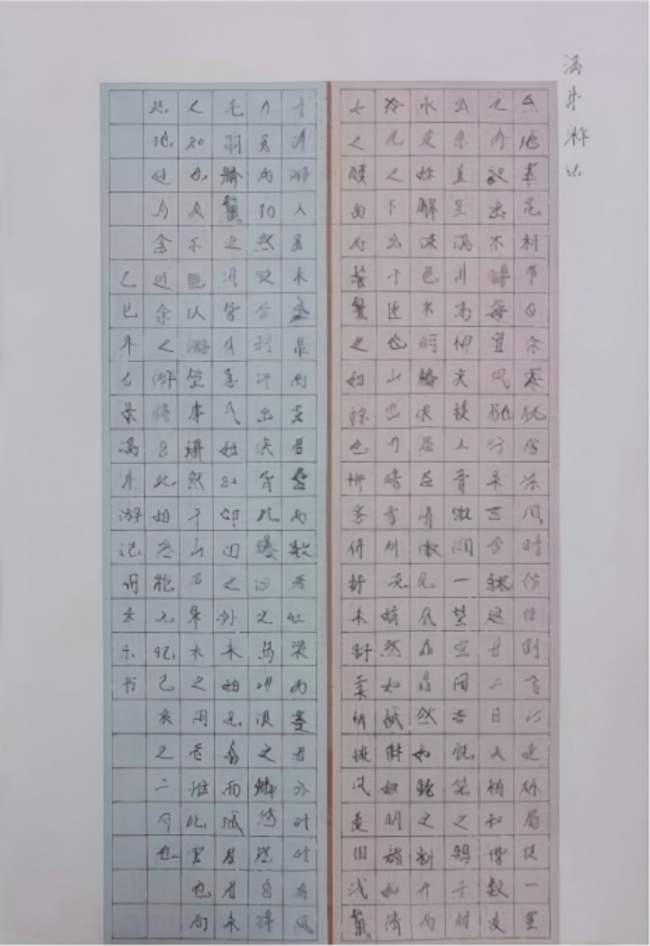 满井游记
燕地寒花朝节后余寒犹厉冻风时作作则飞沙走砾局促一室
之内欲出不得每冒风驰行未百步辄返廿二日天稍和偕数友
出东直至满井高柳夹堤土膏微润一望空阔若脱笼之鹄于时
冰皮始解波色乍明鳞浪层层清澈见底晶晶然如镜之新开而
冷光之乍出于匣也山峦为晴雪所洗娟然如拭鲜妍明媚如倩
女之靧面而髻鬟之始掠也柳条将舒未舒柔梢披风麦田浅鬣
寸许游人虽未盛泉而茗者罍而歌者红装而蹇者亦时时有风
力虽尚劲然徒步则汗出浃背凡曝沙之鸟呷浪之鳞悠然自得
毛羽鳞鬣之间皆有喜气始知郊田之外未始无春而城居者未
之知也夫不能以游堕事潇然于山石草木之间者惟此官也而
此地适与余近余之游将自此始恶能无纪己亥之二月也
乙巳年满井游记书